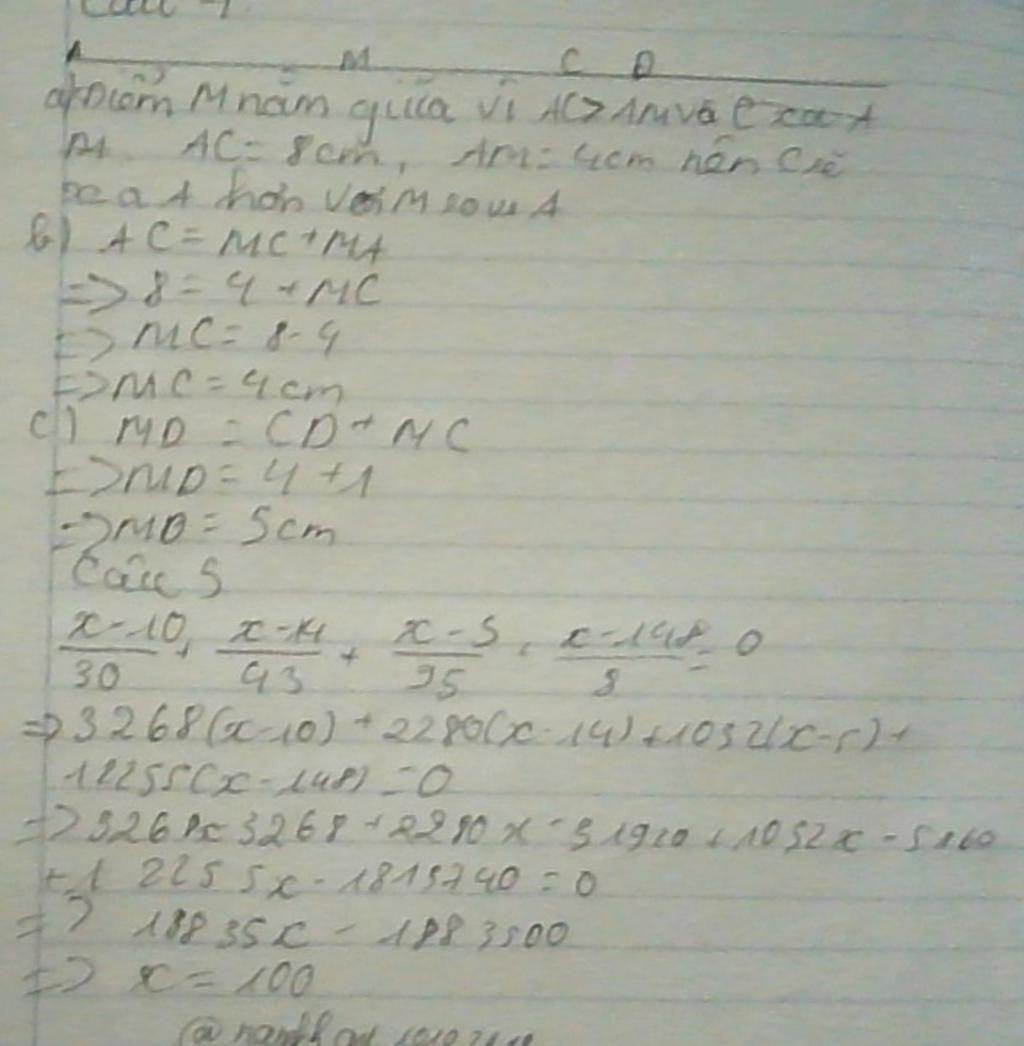 Câu 4
A M C D
a) Điểm M nằm giữa vì AC > AM và C xa A
M. AC = 8cm, AM = 4cm nên C sẽ
xa A hơn với M so với A
b) AC = MC + MA
=> 8 = 4 + MC
=> MC = 8 - 4
=> MC = 4cm
c) MD = CD + MC
=> MD = 4 + 1
=> MD = 5cm
Câu 5
x-10/30 + x-14/43 + x-5/95 + x-148/8 = 0
=> 3268(x-10) + 2280(x-14) + 1032(x-5) +
12255(x-148) = 0
=> 3268x 3268 + 2280x - 31920 + 1032x - 5160
+ 12255x - 1813740 = 0
=> 18835x - 1883500
=> x = 100